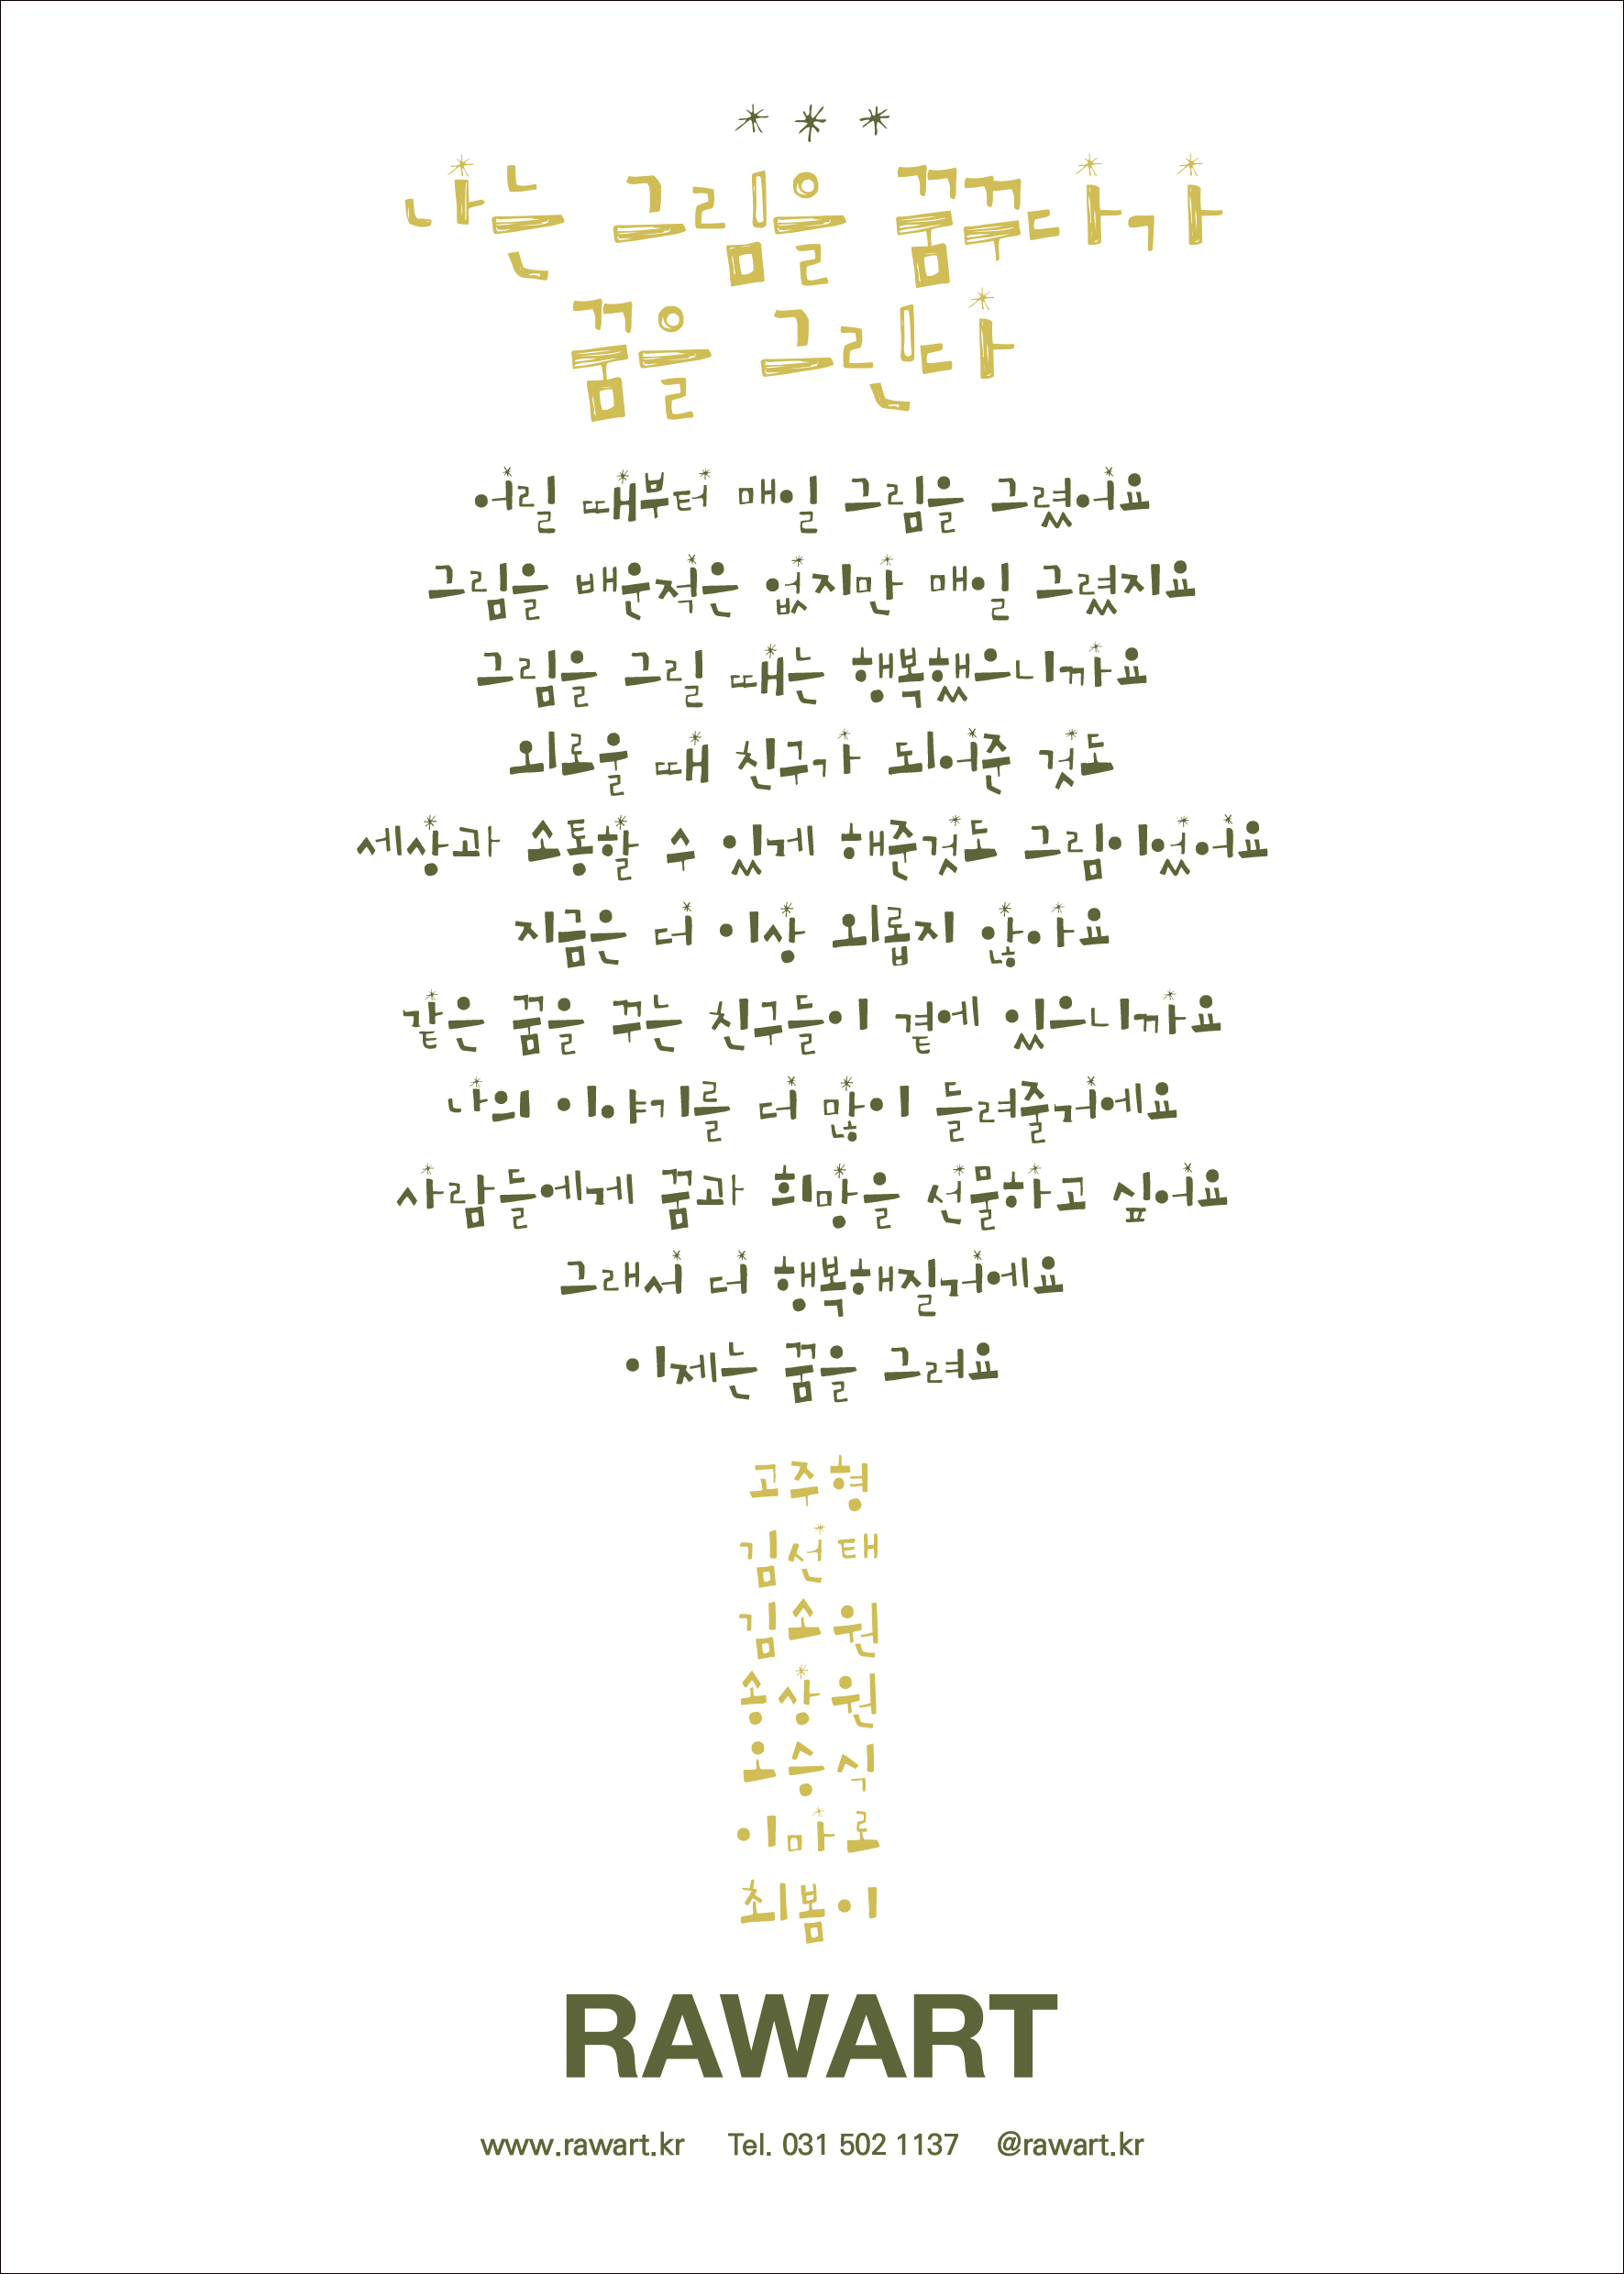 * * *
나는 그림을 꿈꾸다가
꿈을 그린다
어릴 때부터 매일 그림을 그렸어요
그림을 배운적은 없지만 매일 그렸지요
그림을 그릴 때는 행복했으니까요
외로울 때 친구가 되어준 것도
세상과 소통할 수 있게 해준것도 그림이었어요
지금은 더 이상 외롭지 않아요
같은 꿈을 꾸는 친구들이 곁에 있으니까요
나의 이야기를 더 많이 들려줄거에요
사람들에게 꿈과 희망을 선물하고 싶어요
그래서 더 행복해질거에요
이제는 꿈을 그려요
고주형
김선태
김소원
송상원
오승식
이마로
최봄이
RAWART
www.rawart.kr Tel. 031 502 1137 @rawart.kr